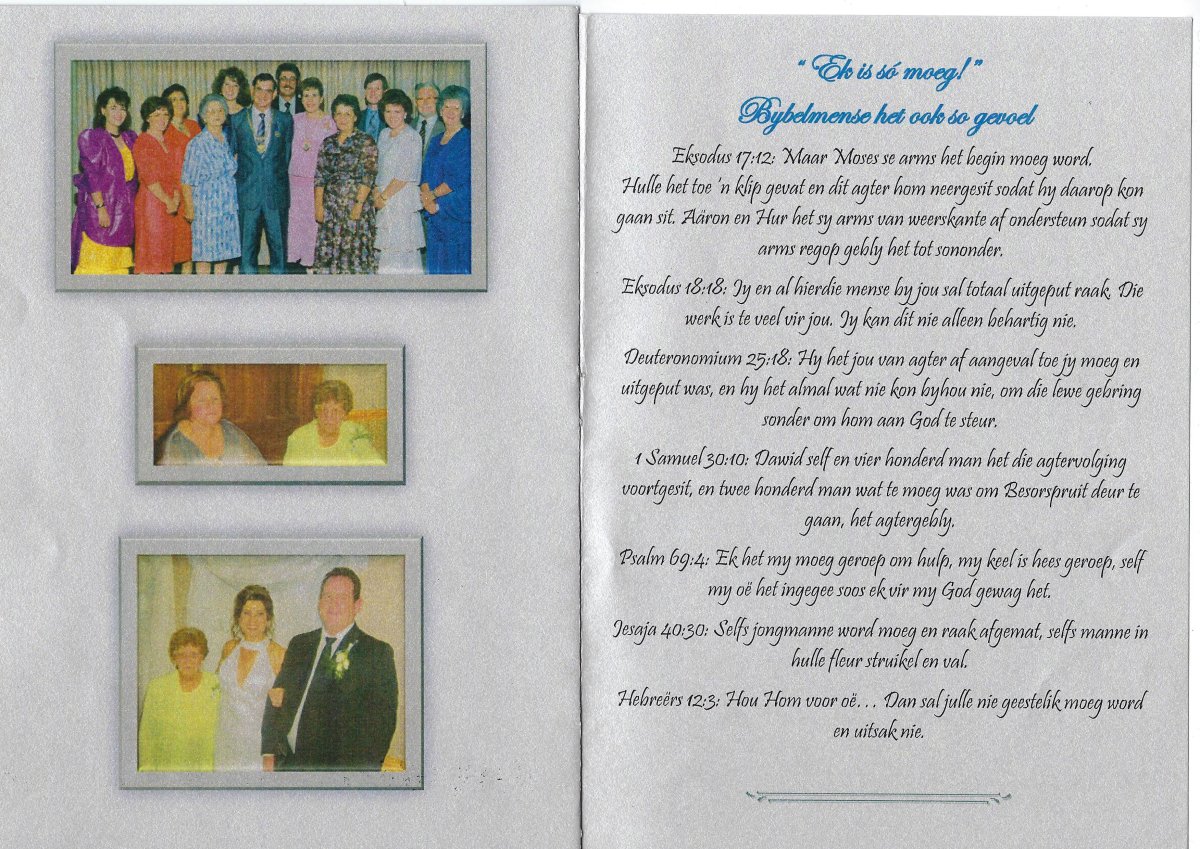 “ Ek is só moeg!”
Bybelmense het ook so gevoel
Eksodus 17:12: Maar Moses se arms het begin moeg word.
Hulle het toe 'n klip gevat en dit agter hom neergesit sodat hy daarop kon
gaan sit. Aäron en Hur het sy arms van weerskante af ondersteun sodat sy
arms regop gebly het tot sononder.
Eksodus 18:18: Jy en al hierdie mense by jou sal totaal uitgeput raak. Die
werk is te veel vir jou. Jy kan dit nie alleen behartig nie.
Deuteronomium 25:18: Hy het jou van agter af aangeval toe jy moeg en
uitgeput was, en hy het almal wat nie kon byhou nie, om die lewe gebring
sonder om hom aan God te steur.
1 Samuel 30:10: Dawid self en vier honderd man het die agtervolging
voortgesit, en twee honderd man wat te moeg was om Besorspruit deur te
gaan, het agtergebly.
Psalm 69:4: Ek het my moeg geroep om hulp, my keel is hees geroep, self
my oë het ingegee soos ek vir my God gewag het.
Jesaja 40:30: Selfs jongmanne word moeg en raak afgemat, selfs manne in
hulle fleur struikel en val.
Hebreërs 12:3: Hou Hom voor oë… Dan sal julle nie geestelik moeg word
en uitsak nie.